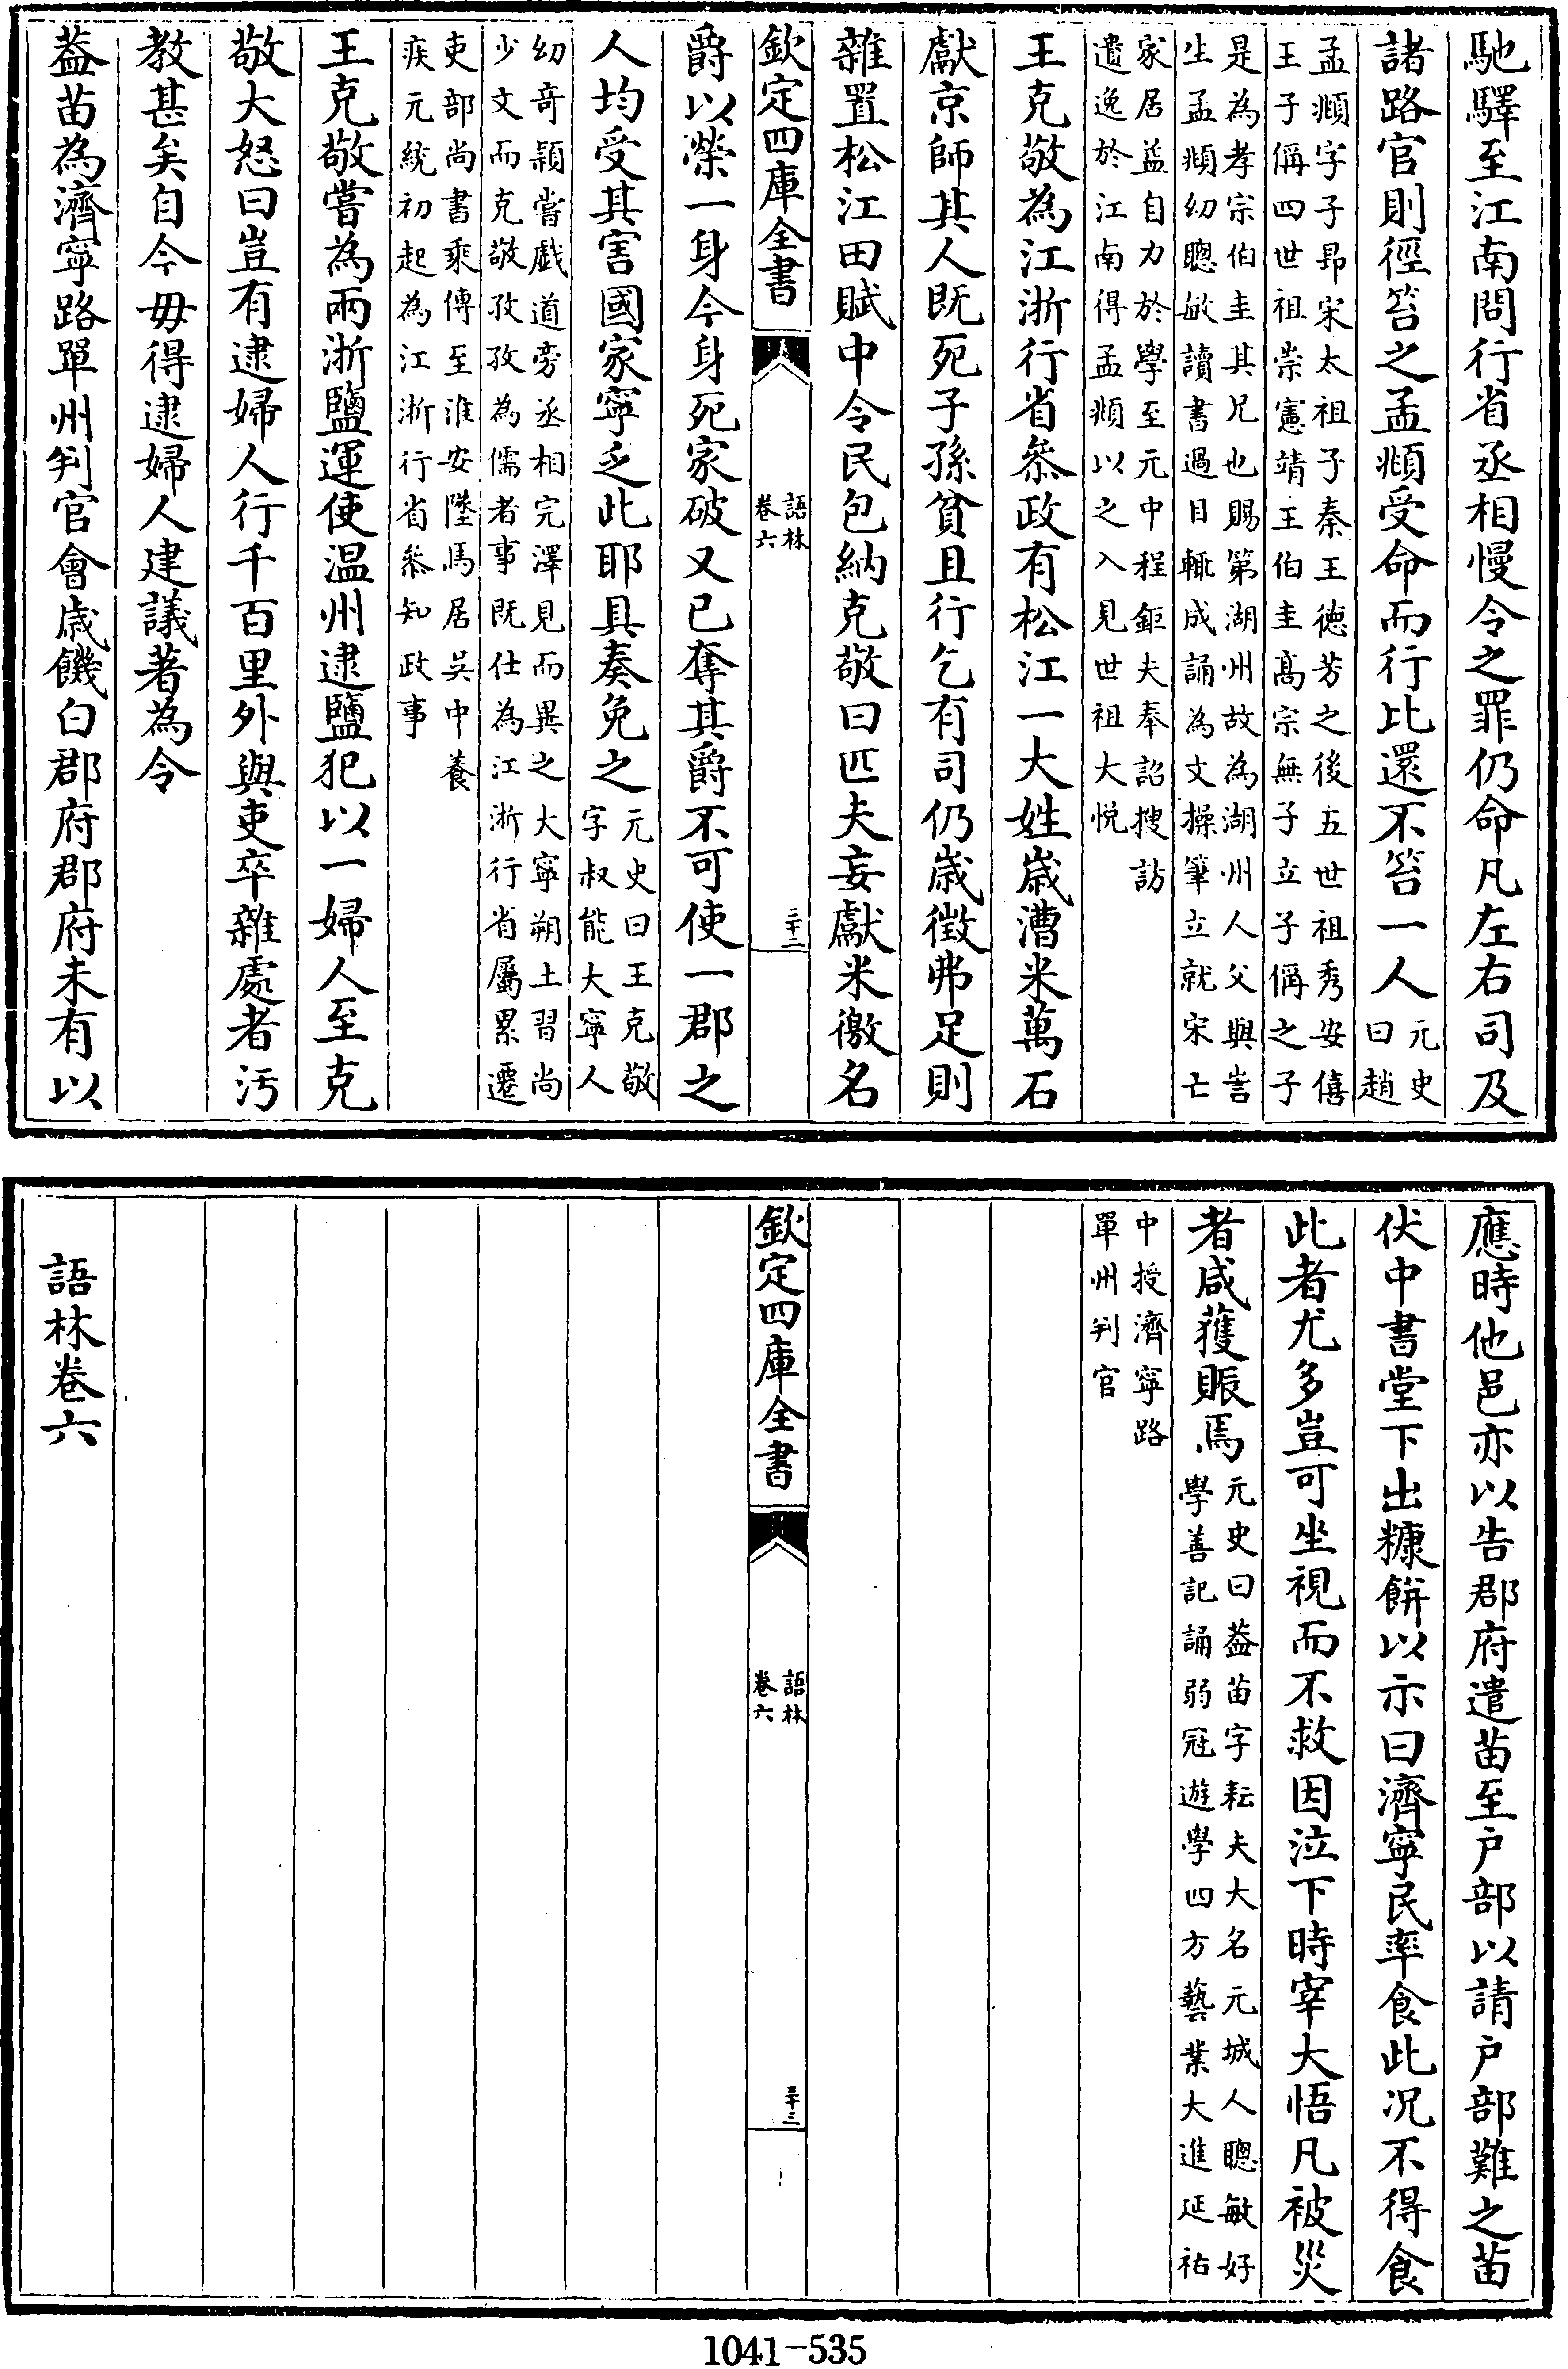 馳驛至江南問行省丞相慢令之罪仍命凡左右司及
諸路官則徑笞之孟頫受命而行比還不笞一人元史
曰趙
孟頫字子昻宋太祖子秦王德芳之後五世祖秀安僖
王子偁四世祖崇憲靖王伯圭髙宗無子立子偁之子
是為孝宗伯圭其兄也賜第湖州故為湖州人父與訔
生孟頫幼聰敏讀書過目輒成誦為文操筆立就宋亡
家居益自力於學至元中程鉅夫奉詔搜訪
遺逸於江南得孟頫以之入見世祖大悅
王克敬為江浙行省叅政有松江一大姓嵗漕米萬石
獻京師其人既死子孫貧且行乞有司仍嵗徵弗足則
雜置松江田賦中令民包納克敬曰匹夫妄獻米徼名
欽定四庫全書
語林
卷六
三十二
爵以榮一身今身死家破又已奪其爵不可使一郡之
人均受其害國家寧乏此耶具奏免之元史曰王克敬
字叔能大寧人
幼竒頴嘗戲道旁丞相完澤見而異之大寧朔土習尚
少文而克敬孜孜為儒者事既仕為江浙行省屬累遷
吏部尚書乘傳至淮安墜馬居吳中養
疾元統初起為江浙行省叅知政事
王克敬嘗為兩浙鹽運使温州逮鹽犯以一婦人至克
敬大怒曰豈有逮婦人行千百里外與吏卒雜處者汚
教甚矣自今毋得逮婦人建議著為令
葢苗為濟寧路單州判官會歳饑白郡府郡府未有以
應時他邑亦以告郡府遣苗至户部以請户部難之苗
伏中書堂下出糠餅以示曰濟寧民率食此况不得食
此者尤多豈可坐視而不救因泣下時宰大悟凡被災
者咸獲賑焉元史曰葢苗字耘夫大名元城人聰敏好
學善記誦弱冠遊學四方藝業大進延祐
中授濟寧路
單州判官
欽定四庫全書
語林
卷六
三十三
語林卷六
1041-535